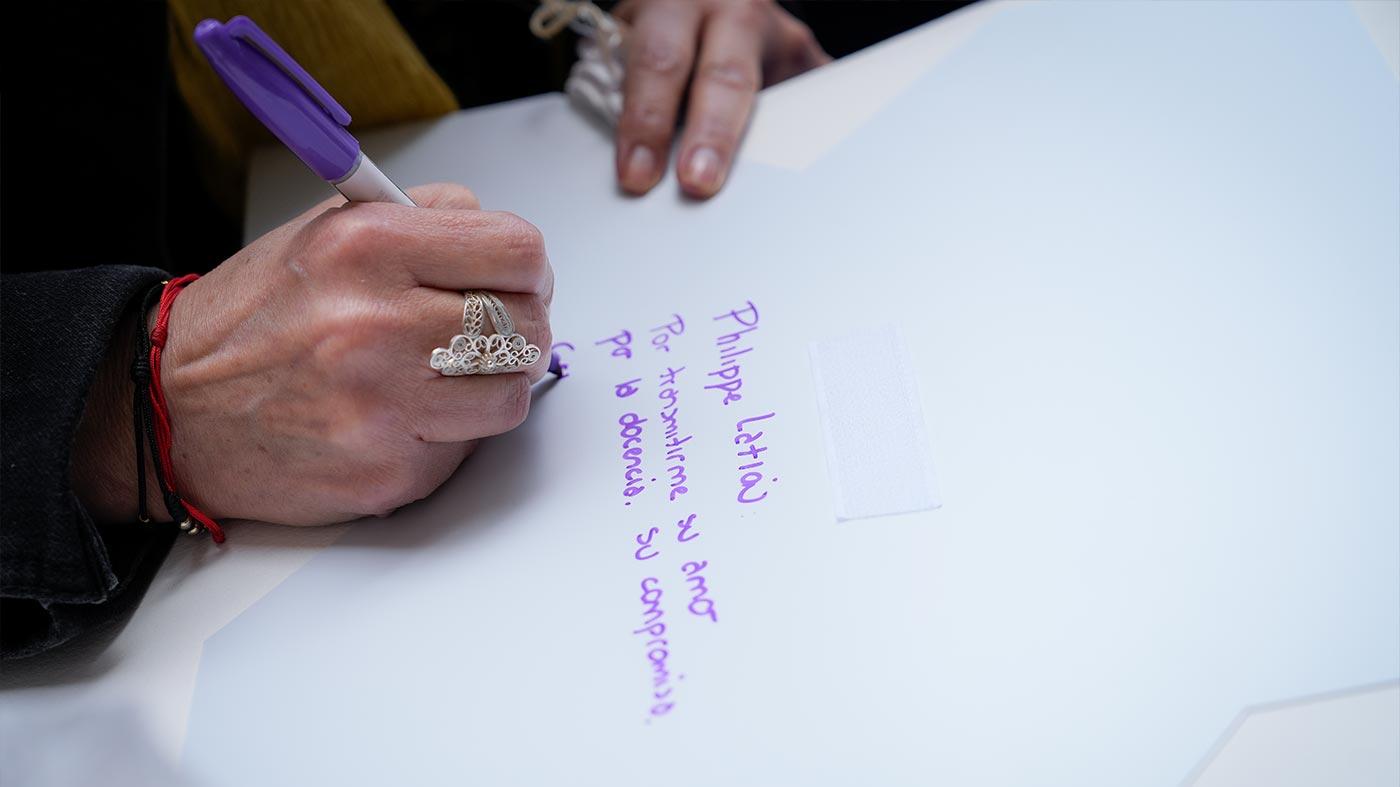 Philippe Latiai:
Por tranxmitirme su amor
por la docencia. su compromiso.